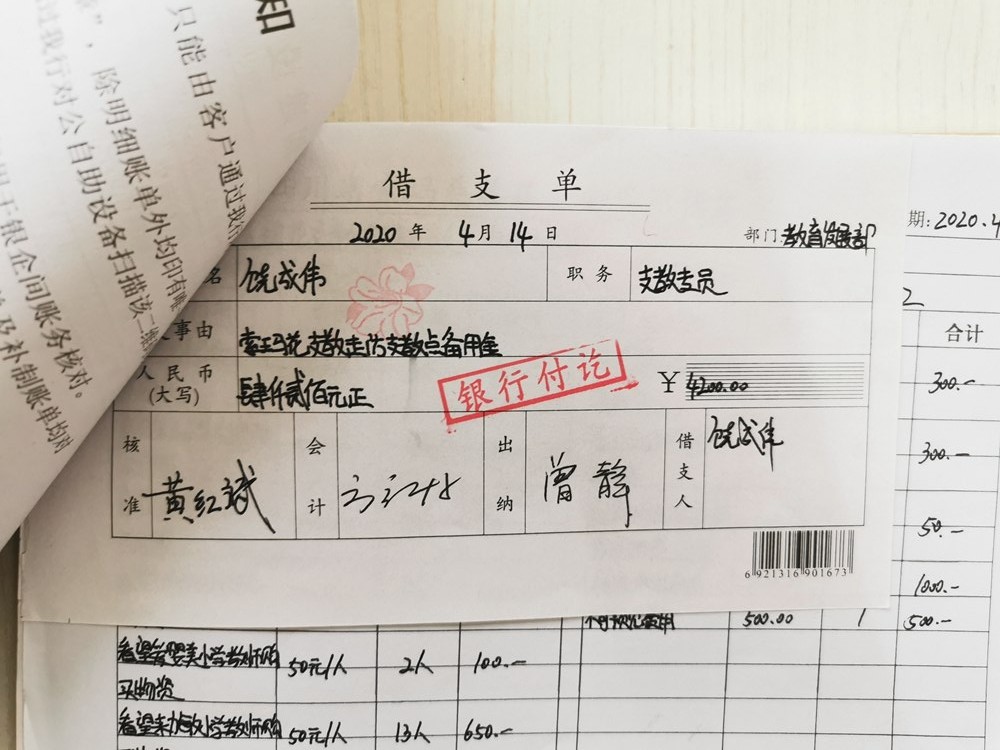 知
只能由客户通过我
"，除明细账单外均印有唯
过我行对公自助设备扫描该二
用于银企间账务核对。
及补制账单均对
借支单
2020年4月14日
部门：教育发展部
名 饶成伟 职务 支教专员
事由
支教走访支教点备用金
人民币
(大写) 肆仟贰佰元正 ¥4200.00
银行付讫
核准 黄红斌 会计 出纳 曾静 借支人 饶成伟
6 921316 901673
期：2020.4
合计
300.-
300.-
50.-
1000.-
不可预见费用 500.00 1 500.-
看望 小学教师购 50元/人 2人 100.-
买物资
看望 小学教师购 50元/人 13人 650.-